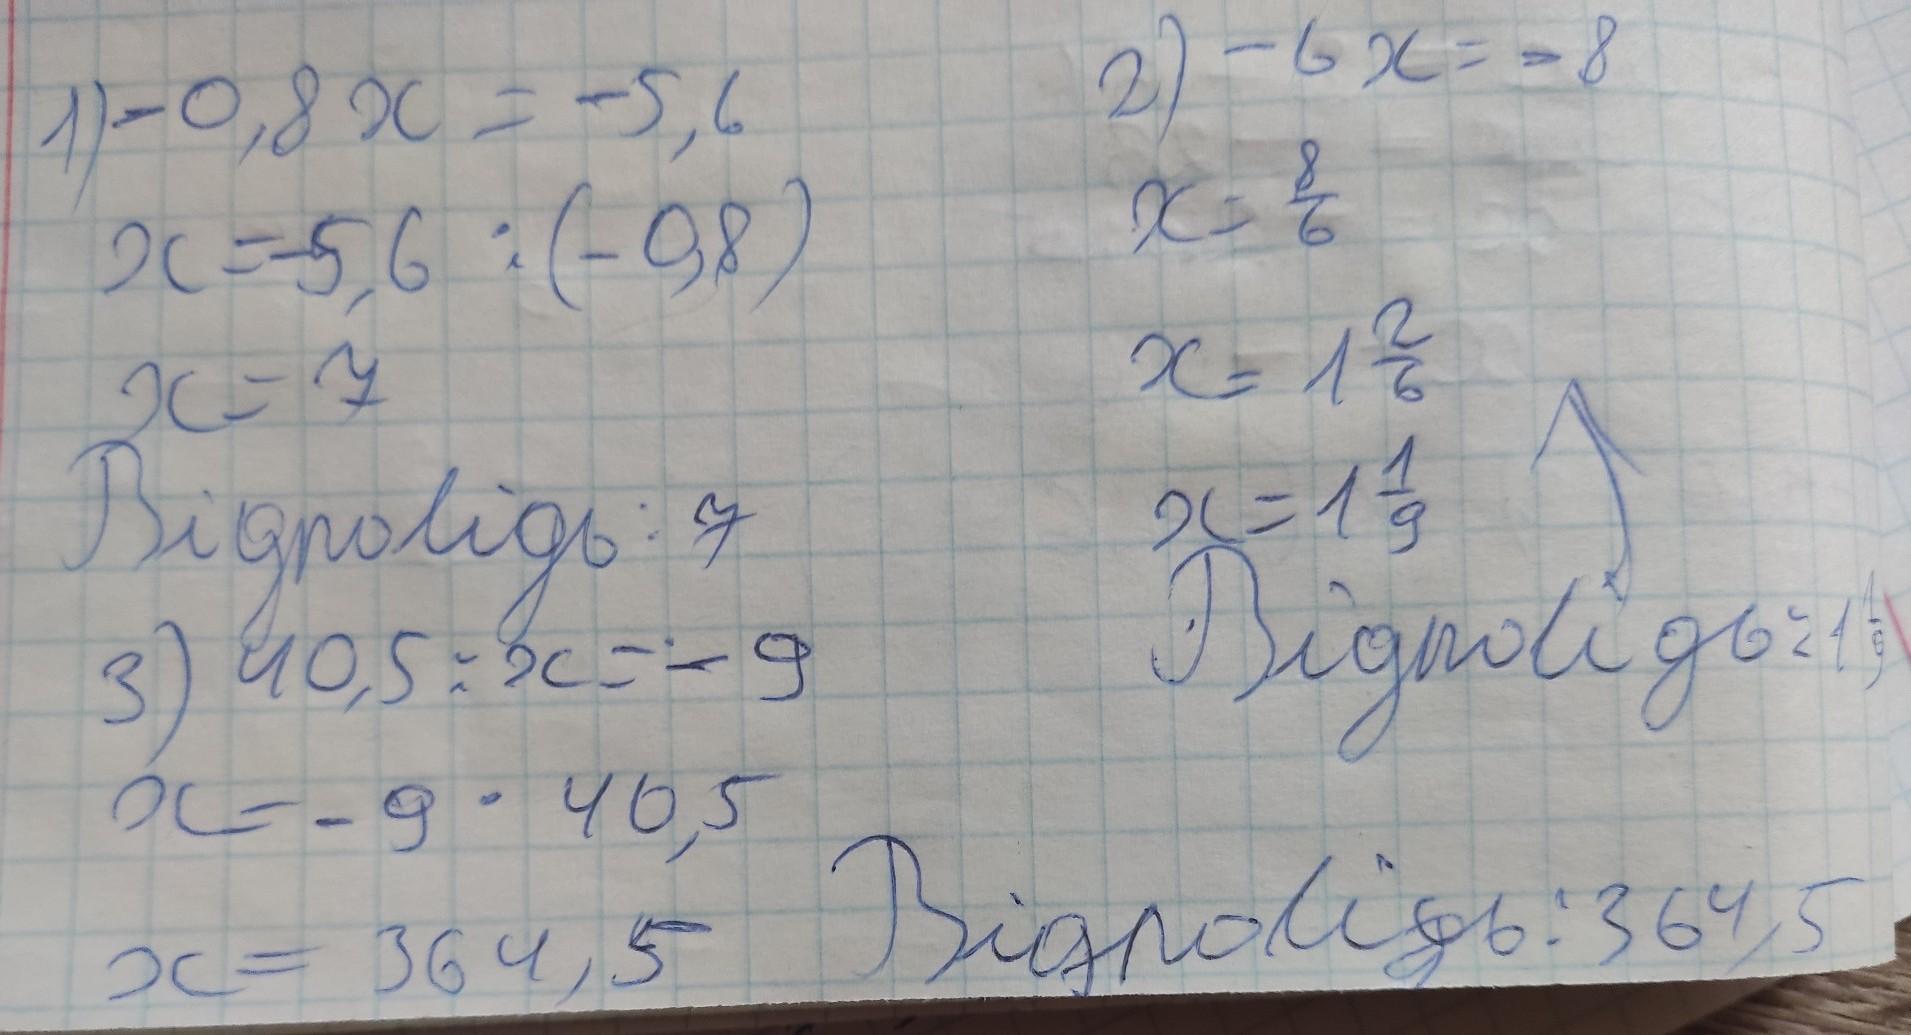 1) -0,8x = -5,6
x = -5,6 : (-0,8)
x = 7
Відповідь: 7
2) -6x = -8
x = 8/6
x = 1 2/6
x = 1 1/9
Відповідь: 1 1/9
3) 40,5 : x = -9
x = -9 · 40,5
x = 364,5
Відповідь: 364,5